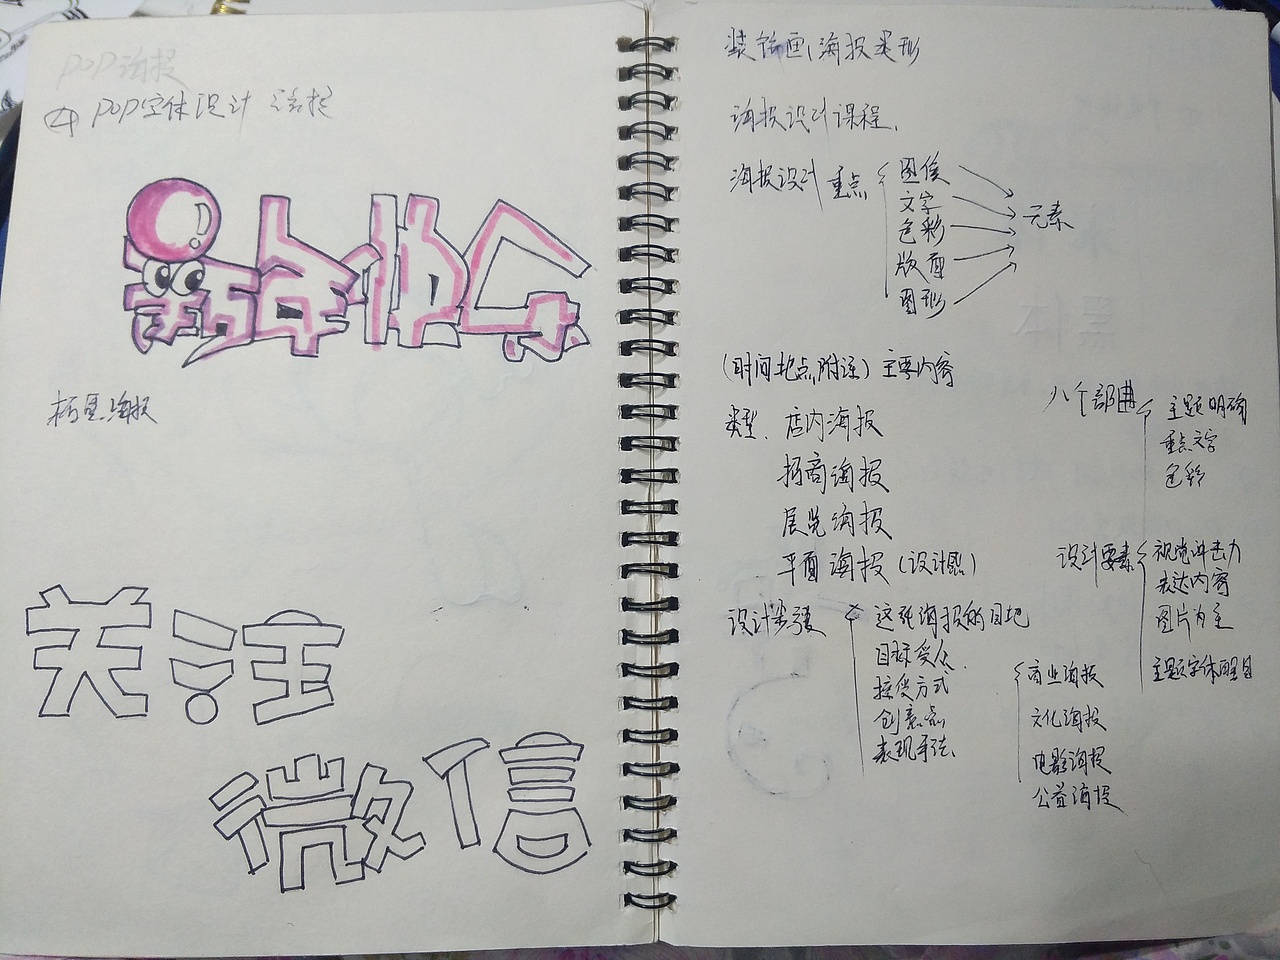 POP海报
④ POP字体设计 海报
新年快乐
招募海报
关注
微信
装饰画、海报类形
海报设计课程、
海报设计 重点 图像
文字
色彩
版面
图形
元素
(时间地点附注) 主要内容
类型、店内海报
招商海报
展览海报
平面海报 (设计
设计步骤 这张海报的目地
目标受众、
接受方式
创意点
表现手法
商业海报
文化海报
电影海报
公益海报
八个部曲 主题明确
重点文字
色彩
设计要素 视觉冲击力
表达内容
图片为主
主题字体醒目